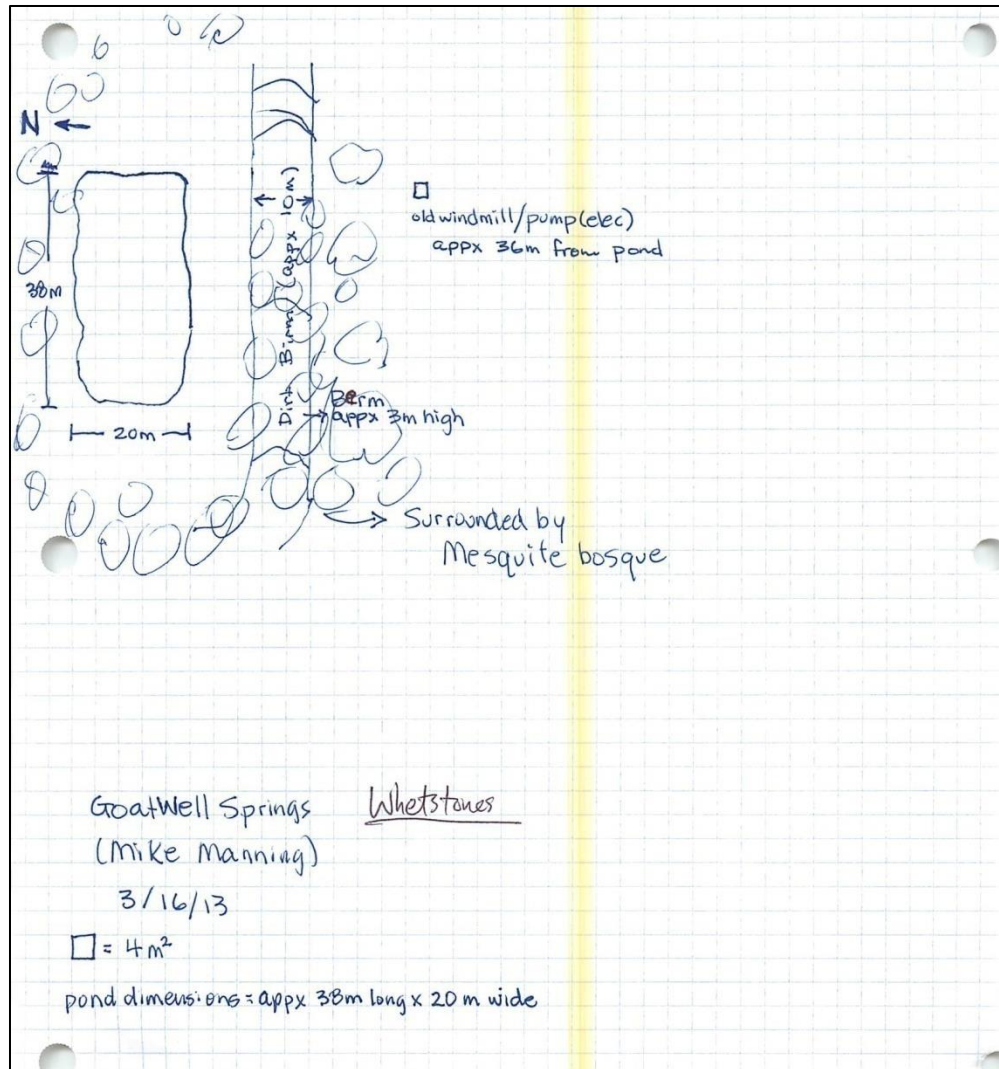 N ←
(appx 10m)
old windmill/pump(elec)
appx 36m from pond
38m
Dirt
Berm
appx 3m high
20m
Surrounded by
Mesquite bosque
GoatWell Springs
Whetstones
(Mike Manning)
3/16/13
□ = 4m²
pond dimensions = appx 38m long x 20 m wide